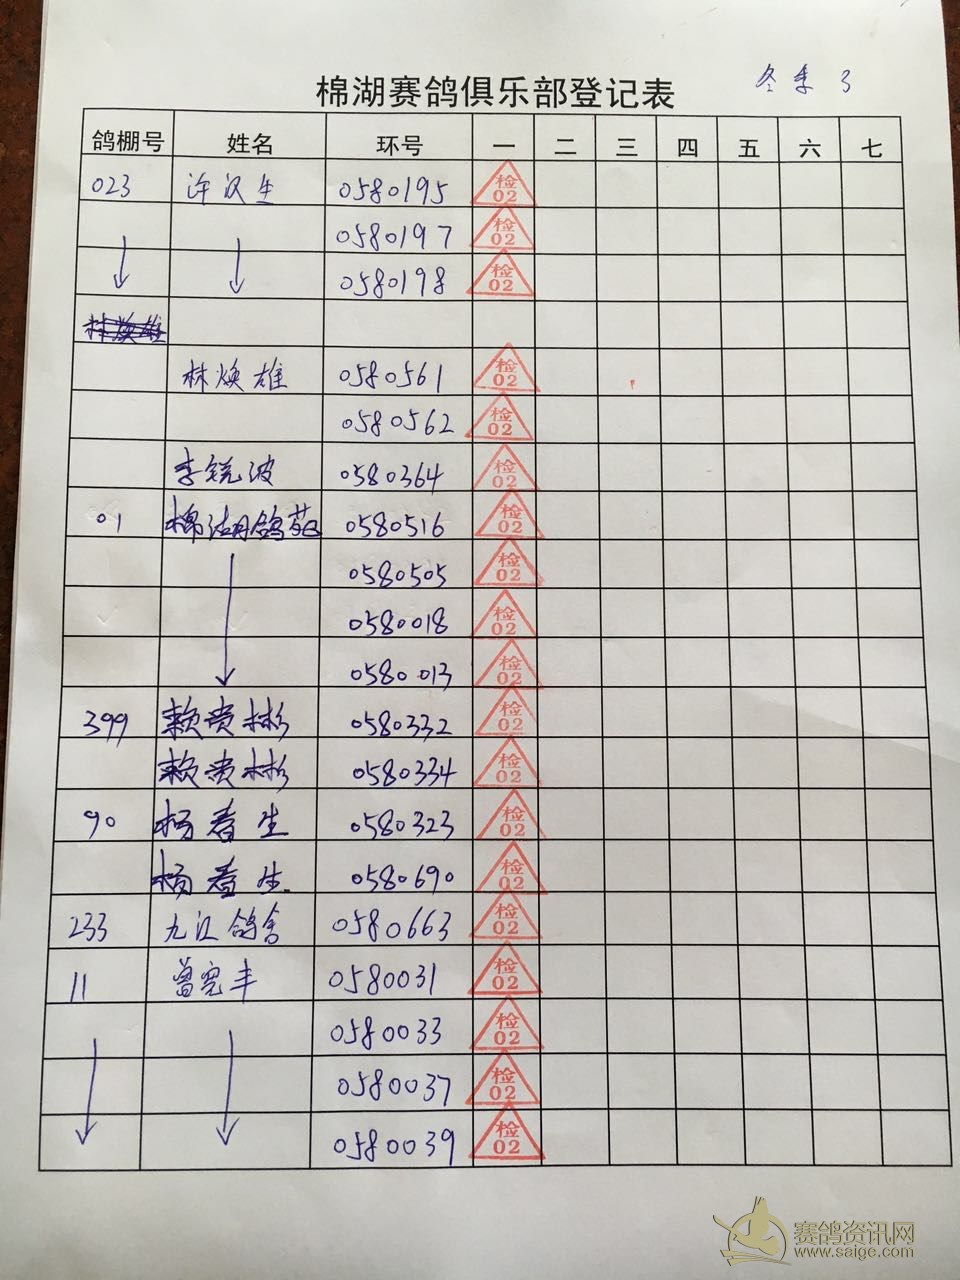 冬季 3
棉湖赛鸽俱乐部登记表
鸽棚号 姓名 环号 一 二 三 四 五 六 七
023 许汉生 0580195 检02
0580197 检02
0580198 检02
林焕雄
林焕雄 0580561 检02
0580562 检02
李锐波 0580364 检02
01 棉湖鸽苑 0580516 检02
0580505 检02
0580018 检02
0580013 检02
399 赖贵彬 0580332 检02
赖贵彬 0580334 检02
90 杨春生 0580323 检02
杨春生 0580690 检02
233 九江鸽舍 0580663 检02
11 曾宪丰 0580031 检02
0580033 检02
0580037 检02
0580039 检02
赛鸽资讯网
www.saige.com